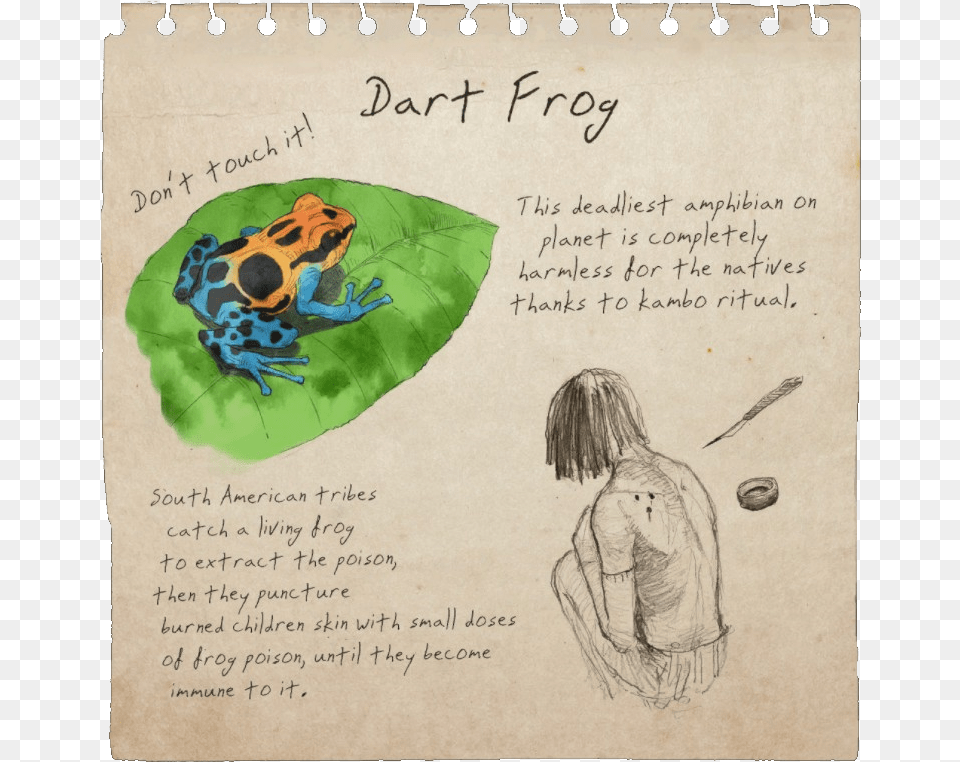 Dart Frog
Don't touch it!
This deadliest amphibian on
planet is completely
harmless for the natives
thanks to kambo ritual.
South American tribes
catch a living frog
to extract the poison,
then they puncture
burned children skin with small doses
of frog poison, until they become
immune to it.